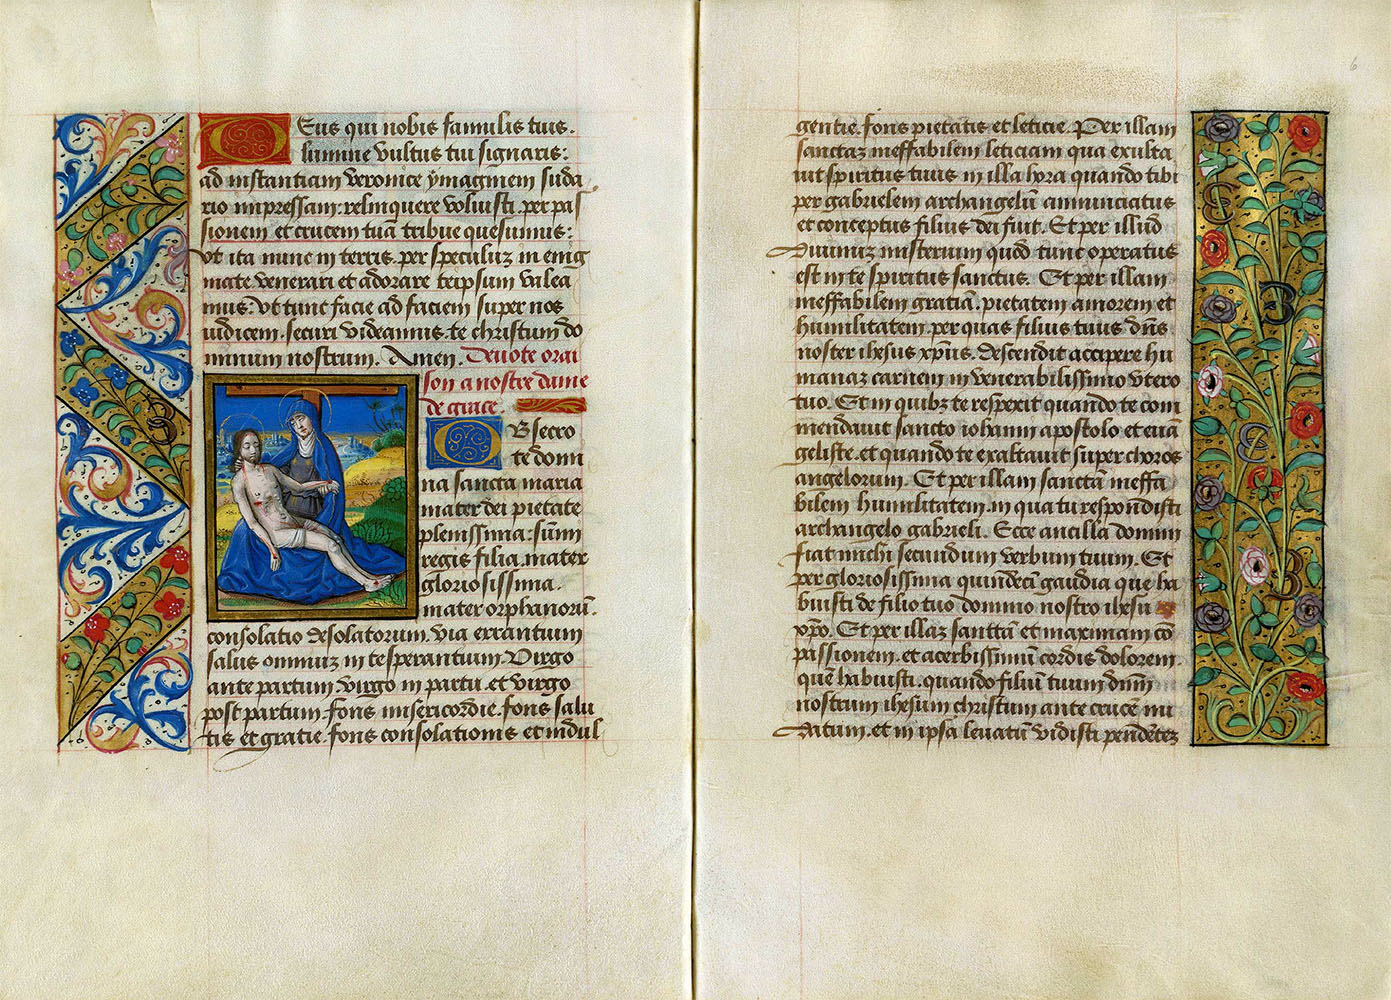 Deus qui nobis famulis tuis.
lumine vultus tui signatis:
ad instantiam veronice ymaginem suda
rio impressam: relinquere voluisti. per pas
sionem et crucem tuā tribue quesumus:
Vt ita nunc in terris. per speculuȝ in enig
mate venerari et adorare teipsum valea
mus: Vt tunc facie ad faciem super nos
iudicem. securi videamus. te christum do
minum nostrum. Amen. Devote orai
son a nostre dame
de grace.
OBsecro
te domi
na sancta maria
mater dei pietate
plenissima: sūmi
regis filia. mater
gloriosissima.
mater orphanorū.
consolatio desolatorum. via errantium
salus omniuȝ in te sperantium. Virgo
ante partum virgo in partu. et virgo
post partum. fons misericordie. fons salu
tis et gratie. fons consolationis et indul
6
gentie. fons pietatis et leticie. Per illam
sanctaȝ ineffabilem leticiam qua exulta
uit spiritus tuus in illa hora quando tibi
per gabrielem archangelū annunciatus
et conceptus filius dei fuit. Et per illud
diuinuȝ misterium quod tunc operatus
est in te spiritus sanctus. Et per illam
ineffabilem gratiā. pietatem amorem et
humilitatem. per quas filius tuus dn̄s
noster ihesus xp̄us. descendit accipere hu
manaȝ carnem in venerabilissimo vtero
tuo. Et in quibȝ te respexit quando te com
mendauit sancto iohanni apostolo et euā
geliste. et quando te exaltauit super choros
angelorum. Et per illam sanctā ineffa
bilem humilitatem. in qua tu respondisti
archangelo gabrieli. Ecce ancilla domini
fiat michi secundum verbum tuum. Et
per gloriosissima quindeci gaudia que ha
buisti de filio tuo domino nostro ihesu
xp̄o. Et per illaȝ sanctā et maximam cō
passionem. et acerbissimū cordis dolorem
quē habuisti. quando filiū tuum dn̄m
nostrum ihesum christum ante crucē nu
datum. et in ipsa leuatū vidisti pendēteȝ